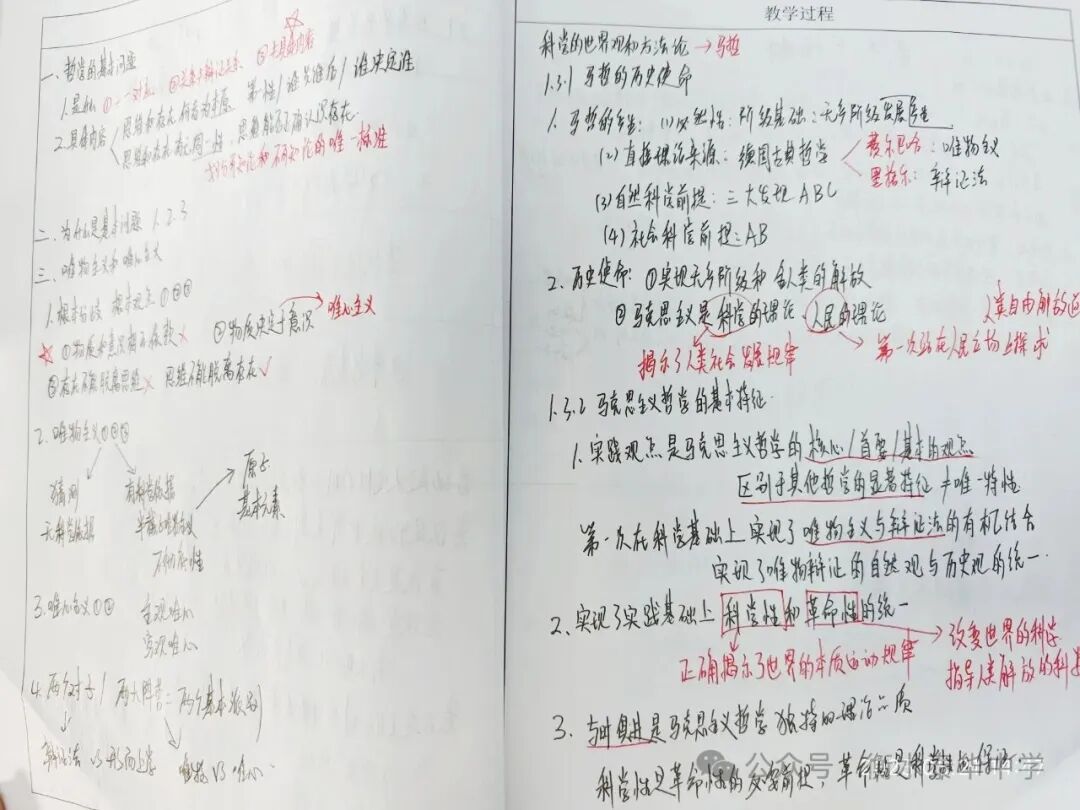 一、哲学的基本问题
1.是什么 ①一对 ②关系 辩证关系 ③七具体内容
2.具体内容 思维和存在何者为本原 第一性/谁先谁后/谁决定谁
思维和存在有无同一性,思维能否正确认识存在
划分可知论和不可知论的唯一标准
二、为什么是基本问题 1.2.3
三、唯物主义和唯心主义
1.根本分歧 根本观点①②③
唯心主义
①物质和意识 × ②物质决定于意识
③存在不能脱离思维× 思维不能脱离存在√
2.唯物主义①②③
猜测 有科学依据 原子
无科学依据 基本元素
3.唯心主义①② 主观唯心
客观唯心
4.两个对子/两大阵营:两个基本派别
辩证法 VS 形而上学 唯物VS唯心
教学过程
科学的世界观和方法论→马哲
1.3.1 马哲的历史使命
1.马哲的产生:(1)必然性:阶级基础:无产阶级发展
(2)直接理论来源:德国古典哲学 费尔巴哈:唯物主义
黑格尔:辩证法
(3)自然科学前提:三大发现ABC
(4)社会科学前提:AB
2.历史使命:①实现无产阶级和全人类的解放
②马克思主义是科学的理论,人民的理论 人类自由解放
揭示了人类社会发展规律 第一次站在人民立场上探求
1.3.2 马克思主义哲学的基本特征
1.实践观点是马克思主义哲学的核心/首要/基本的观点
区别于其他哲学的显著特征≠唯一特性
第一次在科学基础上实现了唯物主义与辩证法的有机结合
实现了唯物辩证的自然观与历史观的统一.
2.实现了实践基础上科学性和革命性的统一
正确揭示了世界的本质运动规律 改变世界的科学
指导人类解放的科
3.与时俱进是马克思主义哲学独特的理论品质
科学性是革命性的必要前提,革命性是科学性的保证.
公众号
中学